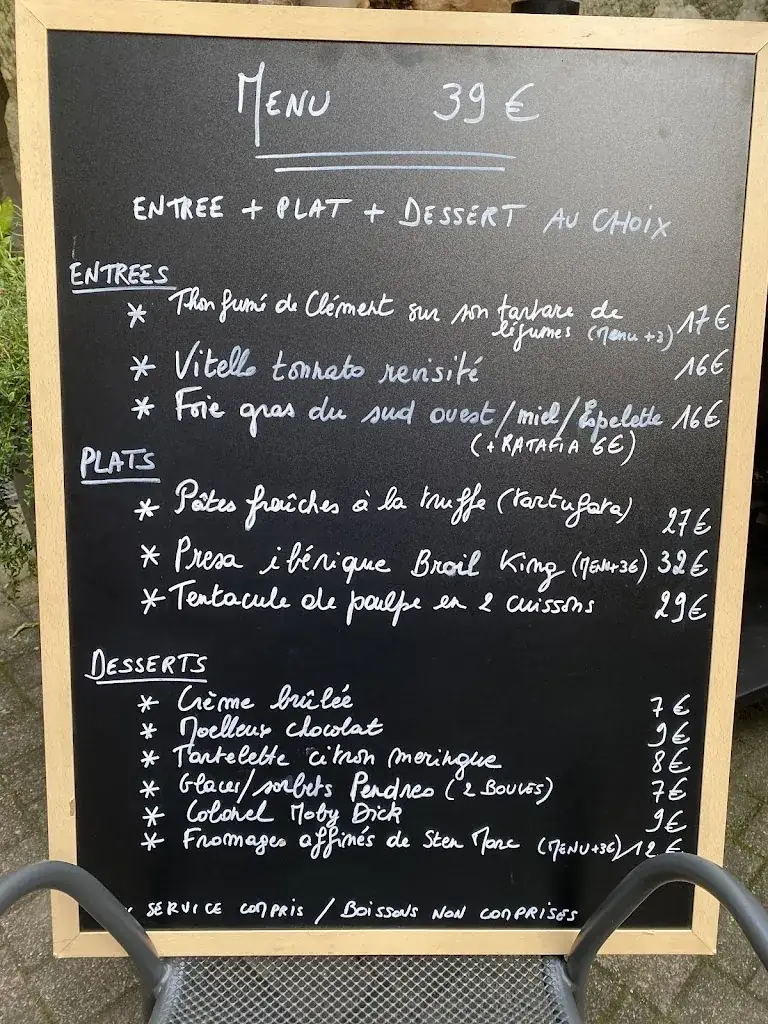 MENU 39 €
ENTREE + PLAT + DESSERT AU CHOIX
ENTREES
* Thon fumé de Clément sur son tartare de
légumes (Menu +3) 17 €
* Vitello tonnato revisité 16 €
* Foie gras du sud ouest/miel/Espelette 16 €
(+ RATAFIA 6€)
PLATS
* Pâtes fraîches à la truffe (tartufata) 27 €
* Presa ibérique Broil King (MENU+3€) 32 €
* Tentacule de poulpe en 2 cuissons 29 €
DESSERTS
* Crème brûlée 7 €
* Moelleux chocolat 9 €
* Tartelette citron meringue 8 €
* Glaces/sorbets Pendreo (2 BOULES) 7 €
* Colonel Moby Dick 9 €
* Fromages affinés de Sten Marc (MENU+3€) 12 €
SERVICE COMPRIS / BOISSONS NON COMPRISES